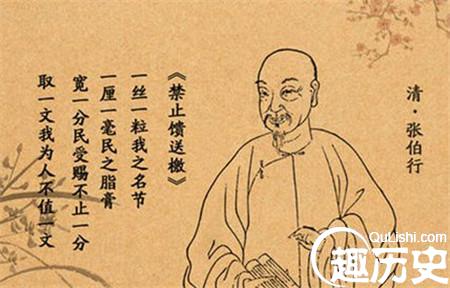 清·张伯行
《禁止馈送檄》
一丝一粒我之名节
一厘一毫民之脂膏
宽一分民受赐不止一分
取一文我为人不值一文
QuLishi.com
趣历史